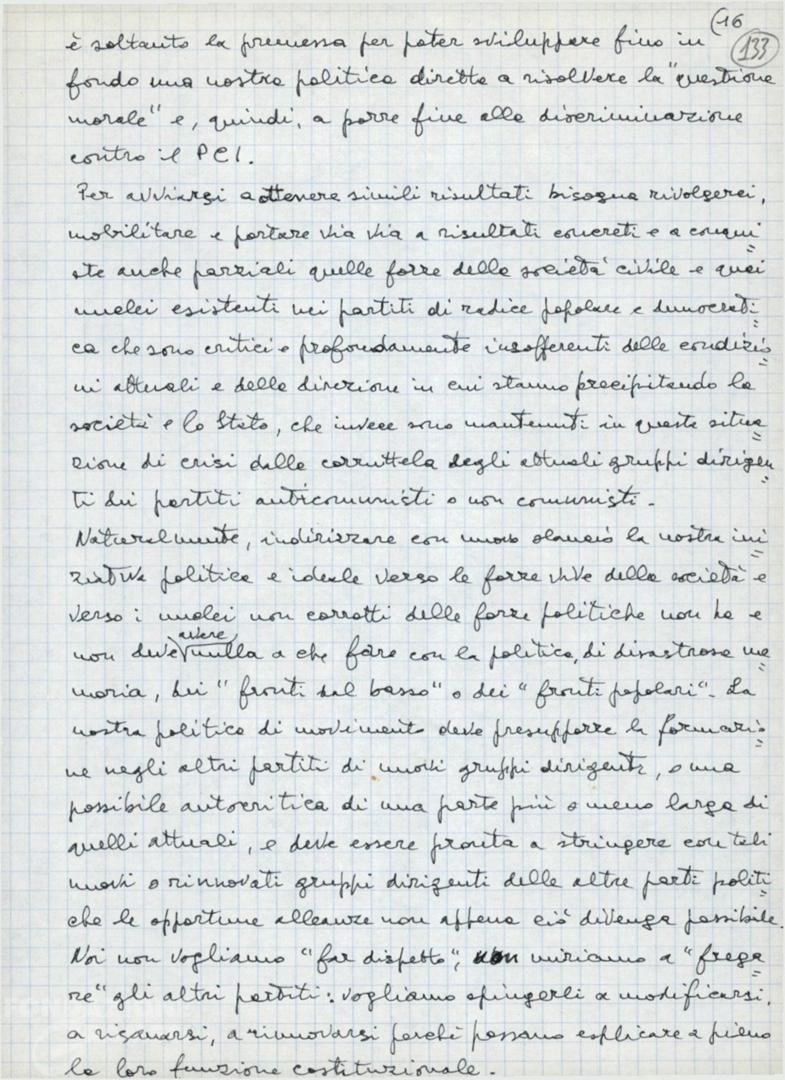 (16
133
è soltanto la premessa per poter sviluppare fino in
fondo una nostra politica diretta a risolvere la "questione
morale" e, quindi, a porre fine alla discriminazione
contro il PCI.
Per avviarsi a ottenere simili risultati bisogna rivolgersi,
mobilitare e portare via via a risultati concreti e a conqui=
ste anche parziali quelle forze della società civile e quei
nuclei esistenti nei partiti di radice popolare e democrati=
ca che sono critici e profondamente insofferenti delle condizio=
ni attuali e della direzione in cui stanno precipitando la
società e lo Stato, che invece sono mantenuti in questa situa=
zione di crisi dalla corruttela degli attuali gruppi dirigen=
ti dei partiti anticomunisti o non comunisti.
Naturalmente, indirizzare con nuovo slancio la nostra ini=
ziativa politica e ideale verso le forze vive della società e
verso i nuclei non corrotti delle forze politiche non ha e
avere
non deve nulla a che fare con la politica, di disastrosa me=
moria, dei "fronti dal basso" o dei "fronti popolari". La
nostra politica di movimento deve presupporre la formazio=
ne negli altri partiti di nuovi gruppi dirigenti, o una
possibile autocritica di una parte più o meno larga di
quelli attuali, e deve essere pronta a stringere con tali
nuovi o rinnovati gruppi dirigenti delle altre parti politi=
che le opportune alleanze non appena ciò divenga possibile.
Noi non vogliamo "far dispetto", non miriamo a "frega=
re" gli altri partiti: vogliamo spingerli a modificarsi,
a risanarsi, a rinnovarsi perché possano esplicare a pieno
la loro funzione costituzionale.